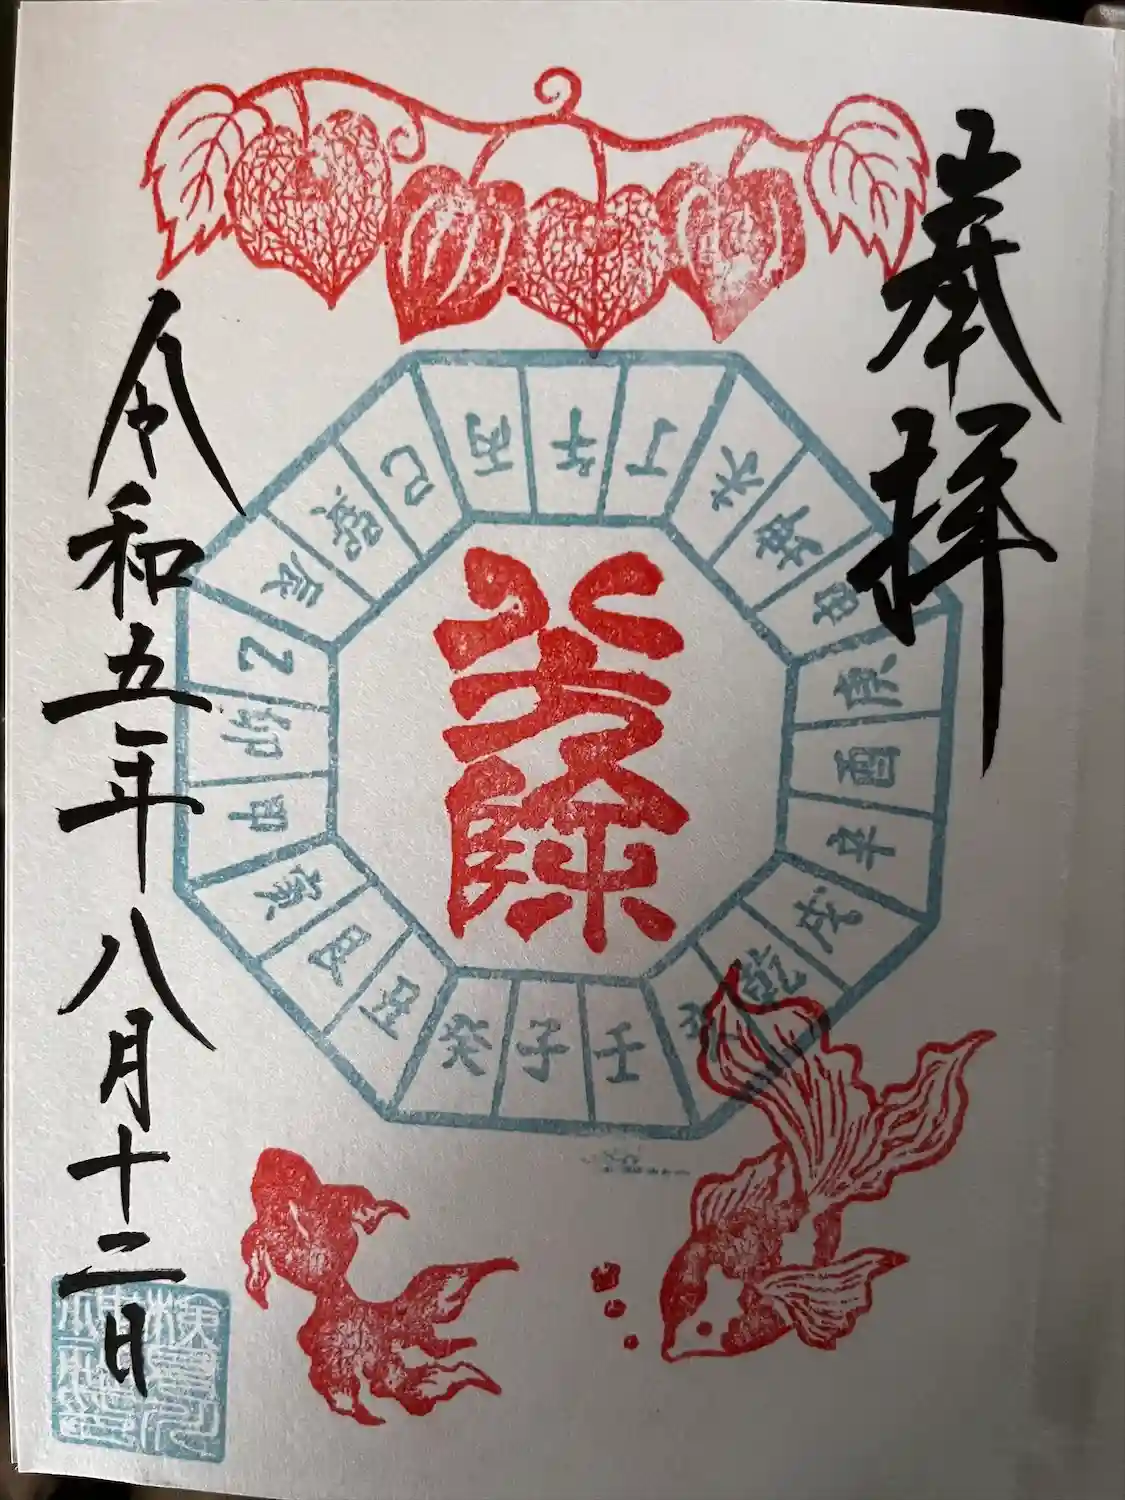 奉拝
丙午丁
未坤申
庚酉辛
戌乾
壬子癸
丑艮寅
甲卯乙
辰巽巳
除
令和五年八月十二日